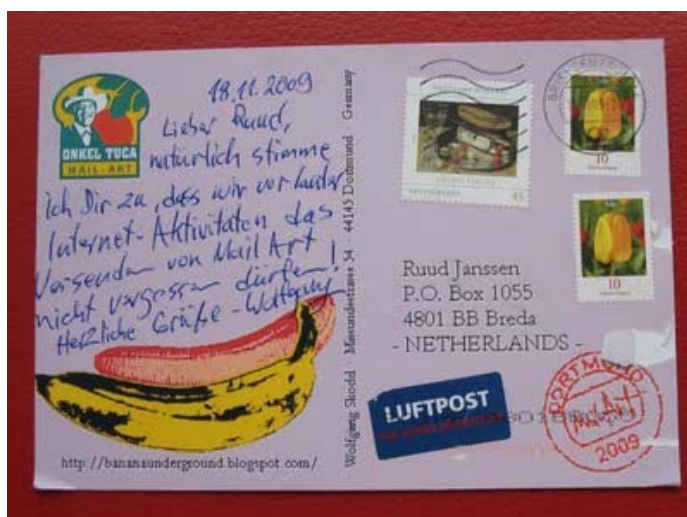 ONKEL TUCA
MAIL ART
18.11.2009
Lieber Ruud,
natürlich stimme
ich Dir zu, dass wir vor lauter
Internet-Aktivitäten das
Versenden von Mail Art
nicht vergessen dürfen!
Herzliche Grüße - Wolfgang
http://bananaunderground.blogspot.com/
Wolfgang Skodd Missundestrasse 34 · 44145 Dortmund Germany
45
10
10
Ruud Janssen
P.O. Box 1055
4801 BB Breda
- NETHERLANDS -
LUFTPOST
DORTMUND
2009